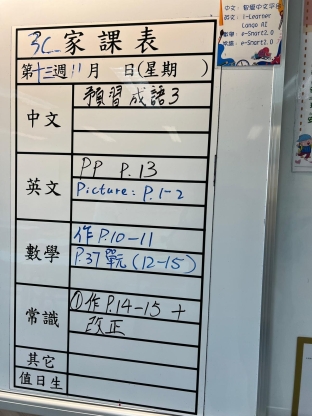 3C 家課表
第十三週 11月 日(星期 )
中文
預習成語3
英文
PP P.13
Picture: P.1-2
數學
作P.10-11
P.37單元(12-15)
常識
①作P.14-15 +
改正
其它
值日生
中文: 智學中文平台
英文: i-Learner
Lango AI
數學: e-Smart2.0
常識: e-Smart2.0